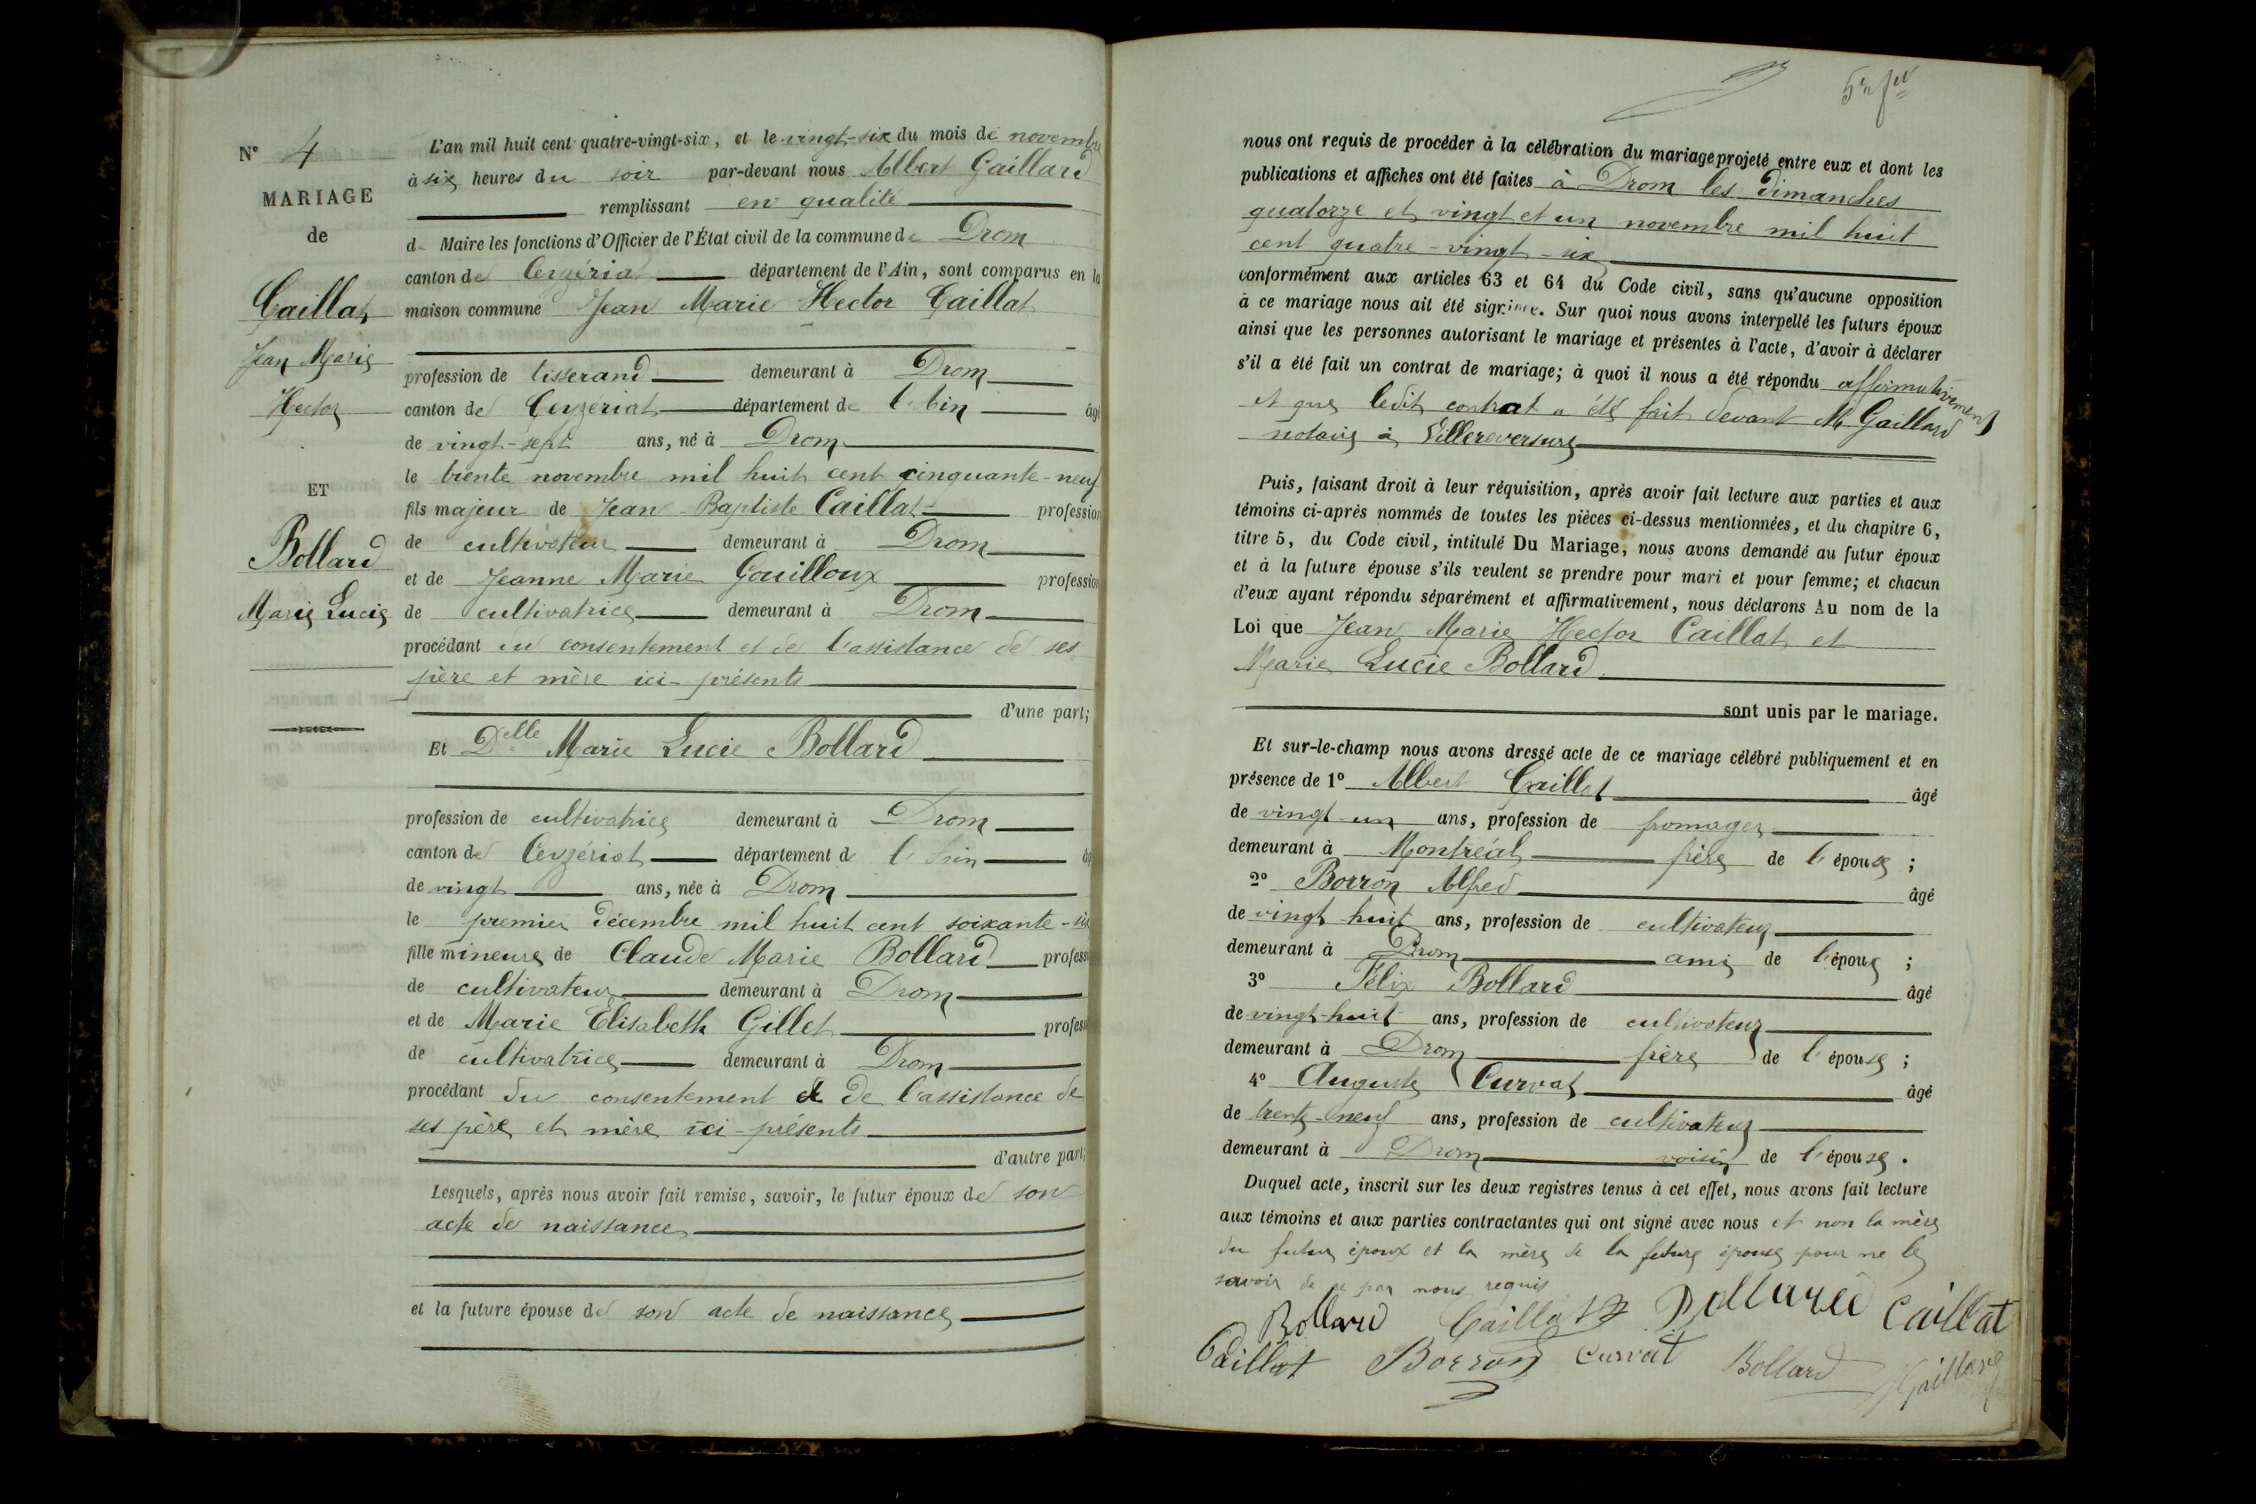 N° 4
MARIAGE
de
Caillat
Jean Marie
Hector
ET
Bollard
Marie Lucie
L'an mil huit cent quatre-vingt-six, et le vingt-six du mois de novembre
à six heures du soir par-devant nous Albert Gaillard
remplissant en qualité
de Maire les fonctions d'Officier de l'État civil de la commune de Drom
canton de Ceyzériat département de l'Ain, sont comparus en la
maison commune Jean Marie Hector Caillat
profession de tisserand demeurant à Drom
canton de Ceyzériat département de l'Ain âgé
de vingt-sept ans, né à Drom
le trente novembre mil huit cent cinquante-neuf
fils majeur de Jean-Baptiste Caillat profession
de cultivateur demeurant à Drom
et de Jeanne Marie Gouilloux profession
de cultivatrice demeurant à Drom
procédant du consentement et de l'assistance de ses
père et mère ici-présents
d'une part;
Et Delle Marie Lucie Bollard
profession de cultivatrice demeurant à Drom
canton de Ceyzériat département de l'Ain âg
de vingt ans, née à Drom
le premier décembre mil huit cent soixante-six
fille mineure de Claude Marie Bollard profess
de cultivateur demeurant à Drom
et de Marie Elisabeth Gillet profess
de cultivatrice demeurant à Drom
procédant du consentement et de l'assistance de
ses père et mère ici-présents
d'autre part;
Lesquels, après nous avoir fait remise, savoir, le futur époux de son
acte de naissance
et la future épouse de son acte de naissance
nous ont requis de procéder à la célébration du mariage projeté entre eux et dont les
publications et affiches ont été faites à Drom les dimanches
quatorze et vingt et un novembre mil huit
cent quatre-vingt-six
conformément aux articles 63 et 64 du Code civil, sans qu'aucune opposition
à ce mariage nous ait été signifiée. Sur quoi nous avons interpellé les futurs époux
ainsi que les personnes autorisant le mariage et présentes à l'acte, d'avoir à déclarer
s'il a été fait un contrat de mariage; à quoi il nous a été répondu affirmativement
et que ledit contrat a été fait devant Me Gaillard
notaire à Villereversure
Puis, faisant droit à leur réquisition, après avoir fait lecture aux parties et aux
témoins ci-après nommés de toutes les pièces ci-dessus mentionnées, et du chapitre 6,
titre 5, du Code civil, intitulé Du Mariage, nous avons demandé au futur époux
et à la future épouse s'ils veulent se prendre pour mari et pour femme; et chacun
d'eux ayant répondu séparément et affirmativement, nous déclarons Au nom de la
Loi que Jean Marie Hector Caillat et
Marie Lucie Bollard
sont unis par le mariage.
Et sur-le-champ nous avons dressé acte de ce mariage célébré publiquement et en
présence de 1° Albert Caillat âgé
de vingt-un ans, profession de fromager
demeurant à Montréal frère de l'épouse ;
2° Borron Alfred âgé
de vingt huit ans, profession de cultivateur
demeurant à Drom ami de l'époux ;
3° Félix Bollard âgé
de vingt-huit ans, profession de cultivateur
demeurant à Drom frère de l'épouse ;
4° Auguste Curvat âgé
de trente-neuf ans, profession de cultivateur
demeurant à Drom voisin de l'épouse.
Duquel acte, inscrit sur les deux registres tenus à cet effet, nous avons fait lecture
aux témoins et aux parties contractantes qui ont signé avec nous et non la mère
du futur époux et la mère de la future épouse pour ne le
savoir de ce par nous requis
Bollard Caillat Bollard Caillat
Caillat Borron Curvat Bollard Gaillard